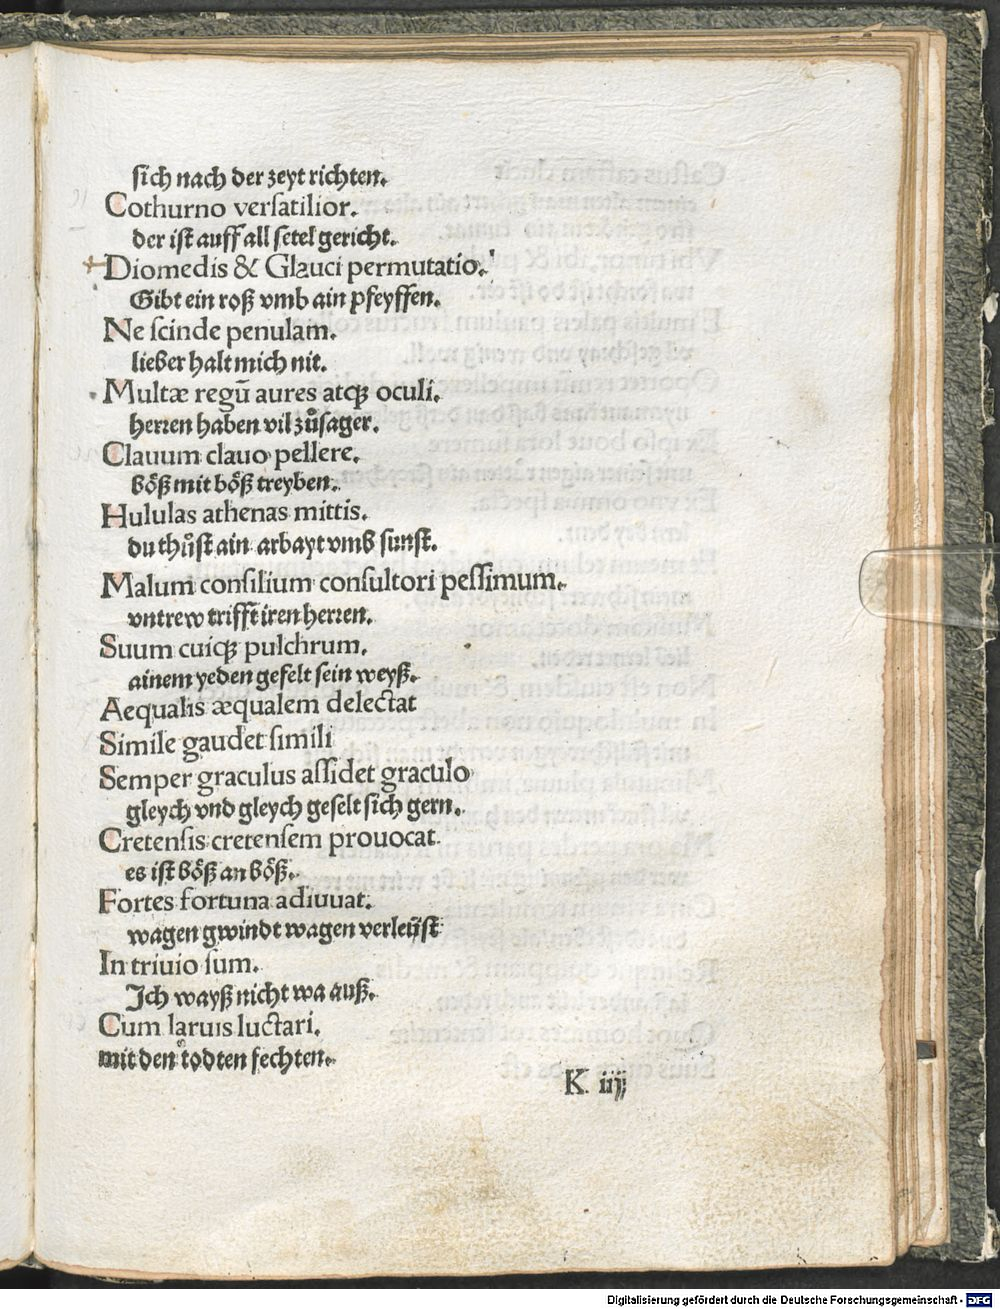 sich nach der zeyt richten.
Cothurno versatilior.
der ist auff all setel gericht.
Diomedis & Glauci permutatio.
Gibt ein roß vmb ain pfeyffen.
Ne scinde penulam.
lieber halt mich nit.
Multæ regū aures atqꝫ oculi.
herren haben vil zůsager.
Clauum clauo pellere.
böß mit böß treyben.
Hululas athenas mittis.
du thůst ain arbayt vmb sunst.
Malum consilium consultori pessimum.
vntrew trifft iren herren.
Suum cuiqꝫ pulchrum.
ainem yeden gefelt sein weyß.
Aequalis æqualem delectat
Simile gaudet simili
Semper graculus assidet graculo
gleych vnd gleych geselt sich gern.
Cretensis cretensem prouocat
es ist böß an böß.
Fortes fortuna adiuuat.
wagen gwindt wagen verleüst
In triuio sum.
Ich wayß nicht wa auß.
Cum laruis luctari.
mit den todten fechten.
K iij
Digitalisierung gefördert durch die Deutsche Forschungsgemeinschaft - DFG